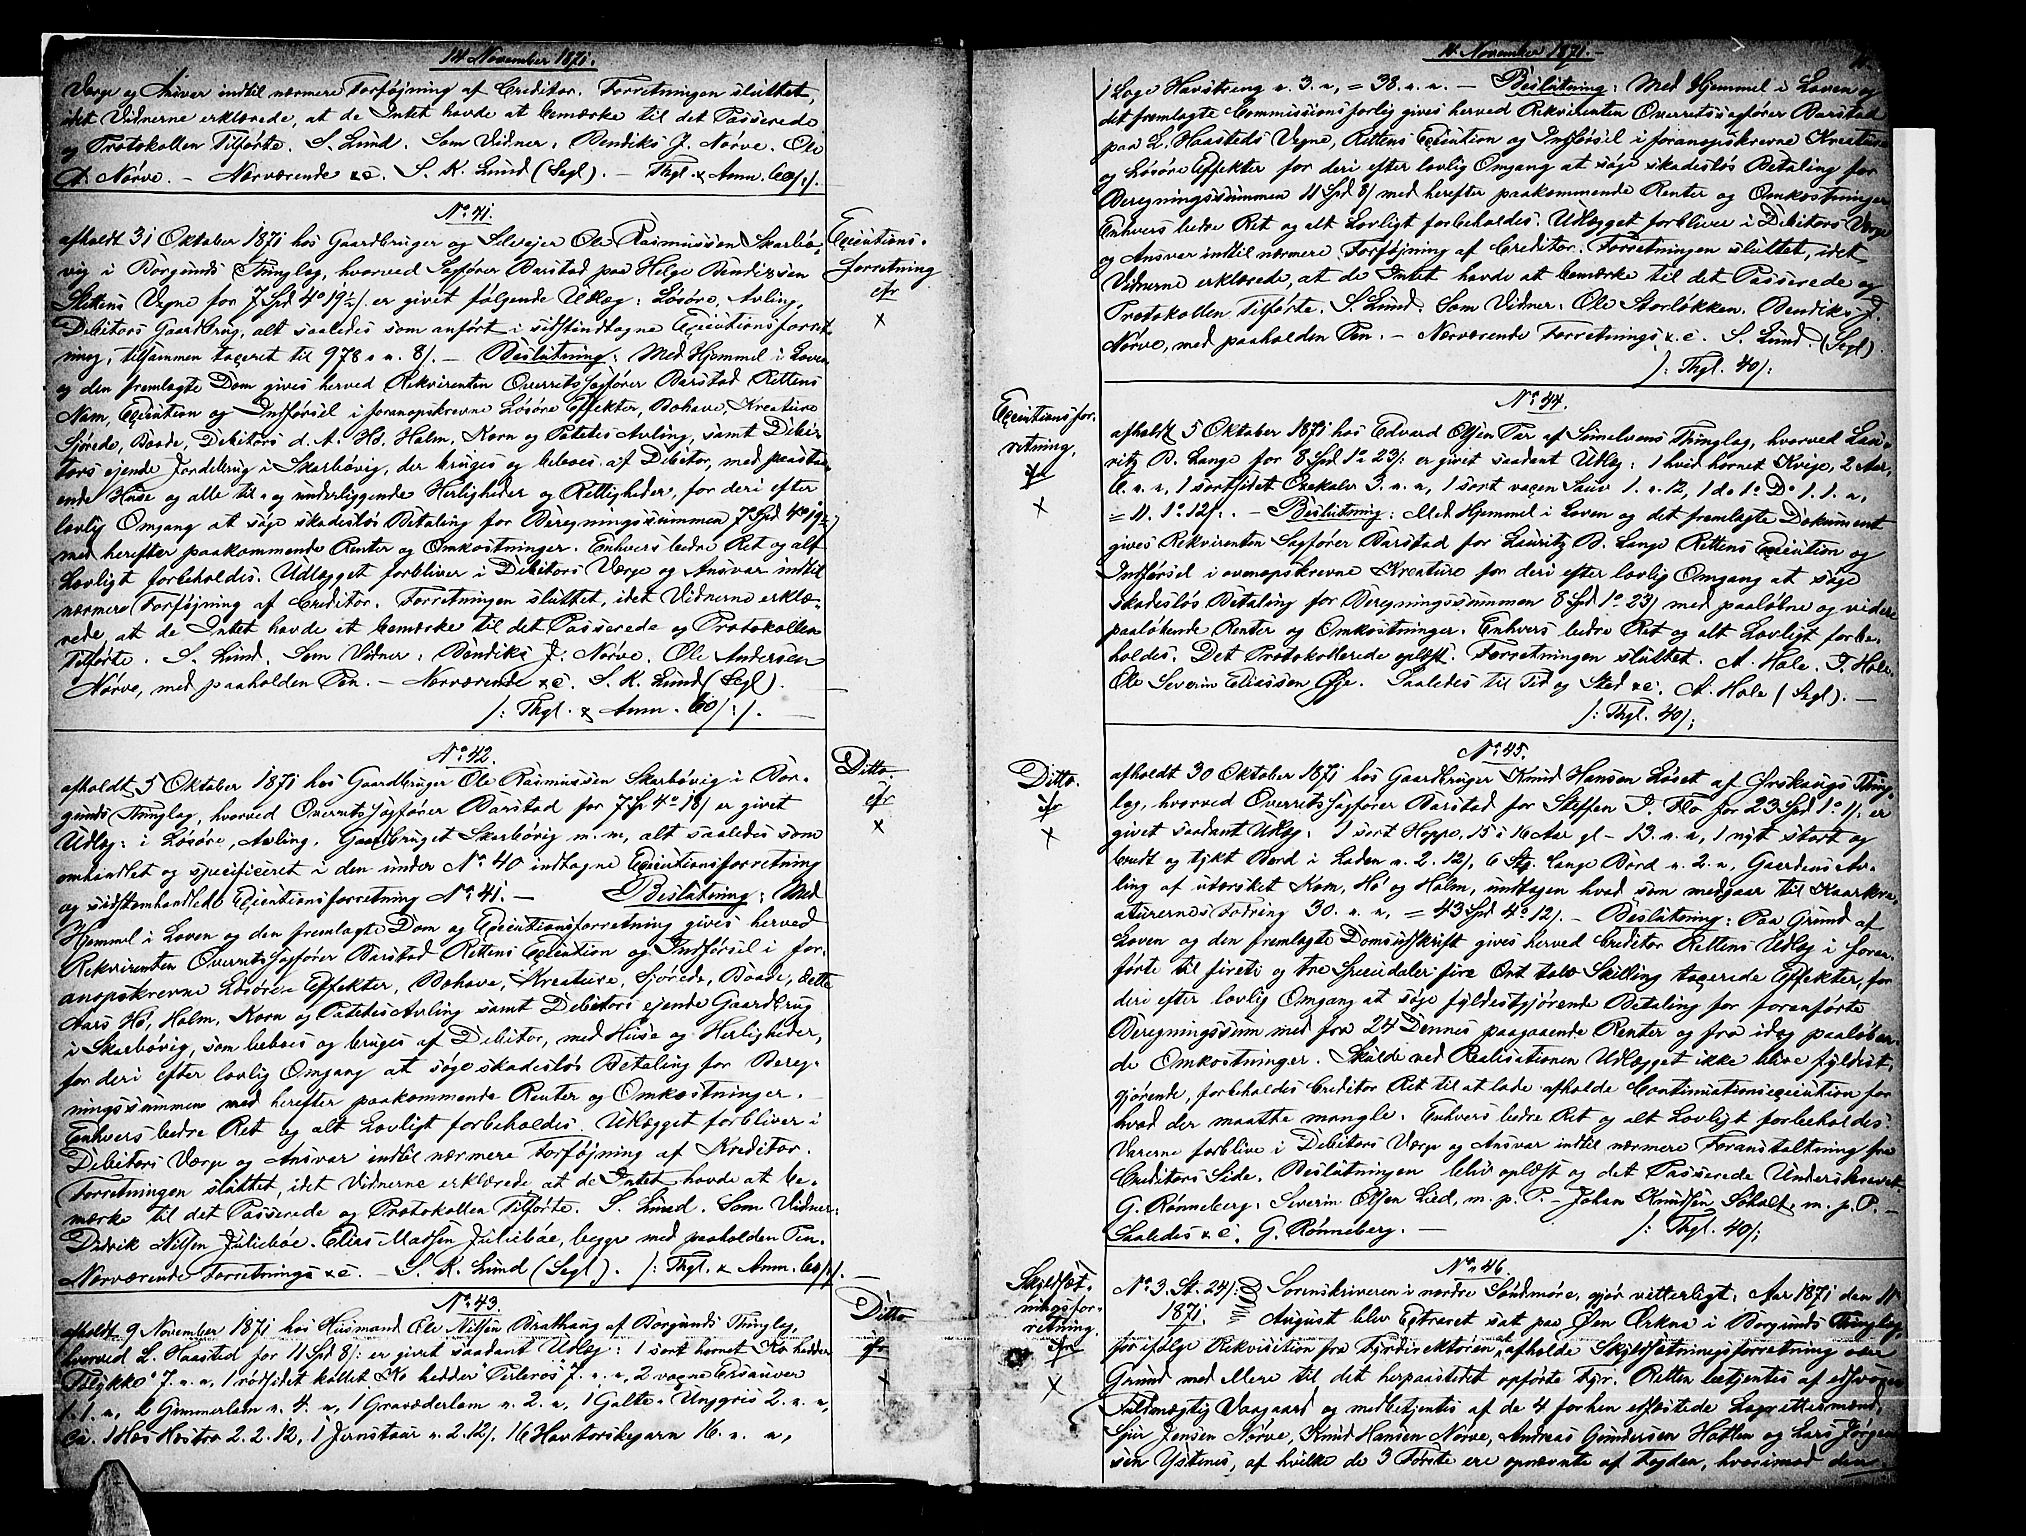 14 November 1871.
Værge og Ansvar indtil nærmere Forføjning af Creditor. Forretningen sluttet,
idet Vidnerne erklærede, at de Intet havde at bemærke til det Passerede
og Protokollen Tilførte. S. Lund. Som Vidner: Bendiks J. Nörve. Ole
A. Nörve. — Nærværende &c. S. K. Lund (Segl). — Thgl. & Anm. 60/:/.
No. 41.
Executions-
forretning
efr
x
afholdt 31 Oktober 1871 hos Gaardbruger og Selvejer Ole Rasmussen Skarbö-
vig i Borgunds Thinglag, hvorved Sagfører Barstad paa Helge Bendixsen
Slettens Vegne for 7 Spd 4 o 19½/. er givet følgende Udlæg: Lösöre, Avling,
Debitors Gaardbrug, alt saaledes som anført i sidstindtagne Executionsforret-
ning, tilsammen taxeret til 978 " n. 8/. — Beslutning: Med Hjemmel i Loven
og den fremlagte Dom gives herved Rekvirenten Overretssagfører Barstad Rettens
Nam, Execution og Indførsel i foranopskrevne Lösöre Effekter, Bohave, Kreature
Sjörede, Baade, Debitors d. A. Hö, Halm, Korn og Potetes Avling, samt Debi-
tors ejende Jordebrug i Skarbövig, der bruges og beboes af Debitor, med paastaa-
ende Huse og alle til- og underliggende Herligheder og Rettigheder, for deri efter
lovlig Omgang at söge skadeslös Betaling for Beregningssummen 7 Spd 4 o 19½/
med herefter paakommende Renter og Omkostninger. Enhvers bedre Ret og alt
Lovligt forbeholdes. Udlægget forbliver i Debitors Værge og Ansvar indtil
nærmere Forføjning af Creditor. Forretningen sluttet, idet Vidnerne erklæ-
rede, at de Intet havde at bemærke til det Passerede og Protokollen
Tilførte. S. Lund. Som Vidner: Bendiks J. Nörve. Ole Andersen
Nörve, med paaholden Pen. — Nærværende &c. S. K. Lund (Segl).
/: Thgl. & Anm. 60/:/. —
No. 42.
Ditto.
efr
x
afholdt 5 Oktober 1871 hos Gaardbruger Ole Rasmussen Skarbövig i Bor-
gunds Thinglag, hvorved Overretssagfører Barstad for 7 Sp 4 o 18/ er givet
Udlæg: i Lösöre, Avling, Gaardbruget Skarbövig m. m, alt saaledes som
omhandlet og specificeret i den under No. 40 indtagne Executionsforretning
og sidstomhandlede Executionsforretning No. 41. — Beslutning: Med
Hjemmel i Loven og den fremlagte Dom og Executionsforretning gives herved
Rekvirenten Overretssagfører Barstad Rettens Execution og Indførsel i for-
anopskrevne Lösöre Effekter, Bohave, Kreature, Sjörede, Baade, dette
Aars Hö, Halm, Korn og Potetes Avling samt Debitors ejende Gaardbrug
i Skarbövig, som beboes og bruges af Debitor, med Huse og Herligheder,
for deri efter lovlig Omgang at söge skadeslös Betaling for Bereg-
ningssummen med herefter paakommende Renter og Omkostninger. —
Enhvers bedre Ret og alt Lovligt forbeholdes. Udlægget forbliver i
Debitors Værge og Ansvar indtil nærmere Forføjning af Kreditor.
Forretningen sluttet, idet Vidnerne erklærede at de Intet havde at be-
mærke til det Passerede og Protokollen Tilførte. S. Lund. Som Vidner:
Didrik Nilsen Juliebøe. Elias Madsen Juliebøe, begge med paaholden Pen.
Nærværende Forretnings &c. — S. K. Lund (Segl). /: Thgl. & Anm. 60/:/. —
No. 43.
Ditto
efr
x
afholdt 9 November 1871 hos Husmand Ole Nilsen Brathaug af Borgunds Thinglag,
hvorved L. Haasted for 11 Spd 8/: er givet saadant Udlæg: 1 sort hornet Ko hedder
"Tolykke" 7. n. n, 1 rødsidet kollet Ko hedder "Perleros" 7. n. n, 2 voxne Ersauver
1. 1. n, 2 Gimmerlam n. 4. n, 1 Gravæderlam n. 2. n, 1 Galte-Unggris 2. n. n,
ca. 1 Hæs Hestro 2. 2. 12, 1 Jernstaur n. 2. 12/. 16 Havtorskegarn 16. n. n,
14 November 1871. —
1 Loge Havstreng n. 3. n, = 38. n. n. — Beslutning: Med Hjemmel i Loven og
det fremlagte Commissionsforlig gives herved Rekvirenten Overretssagfører Barstad
paa L. Haasteds Vegne, Rettens Execution og Indførsel i foranopskrevne Kreature
og Lösöre Effekter for deri efter lovlig Omgang at söge skadeslös Betaling for
Beregningssummen 11 Spd 8/ med herefter paakommende Renter og Omkostninger
Enhvers bedre Ret og alt Lovligt forbeholdes. Udlægget forbliver i Debitors Værge
og Ansvar indtil nærmere Forføjning af Creditor. Forretningen sluttet, idet
Vidnerne erklærede, at de Intet havde at bemærke til det Passerede og
Protokollen Tilførte. S. Lund. Som Vidner: Ole Storløkken. Bendiks J.
Nörve, med paaholden Pen. — Nærværende Forretnings &c. S. Lund. (Segl).
/: Thgl. 40/:
No. 44.
Executionsfor-
retning.
efr
x
afholdt 5 Oktober 1871 hos Edvard Olsen Tar af Sunelvens Thinglag, hvorved Lau-
ritz B. Lange for 8 Spd 1 o 23/: er givet saadant Udlæg: 1 hvid hornet Kvige, 2 Aar,
6. n. n, 1 sortsidet Oxekalv 3. n. n, 1 sort voxen Sauv 1. n. 12, 1 do 1 o Do 1. 1. n,
= 11. 1 o 12/. — Beslutning: Med Hjemmel i Loven og det fremlagte Dokument
gives Rekvirenten Sagfører Barstad for Lauritz B. Lange Rettens Execution og
Indførsel i ovenopskrevne Kreature for deri efter lovlig Omgang at söge
skadeslös Betaling for Beregningssummen 8 Spd 1 o 23/ med paaløbne og videre
paaløbende Renter og Omkostninger. Enhvers bedre Ret og alt Lovligt forbe-
holdes. Det Protokollerede oplæst. Forretningen sluttet. A. Hole. P. Hole.
Ole Severin Eliassen Øje. Saaledes til Tid og Sted &c. A. Hole (Segl). —
/: Thgl. 40/:
No. 45.
Ditto.
efr
x
afholdt 30 Oktober 1871 hos Gaardbruger Knud Hansen Löset af Ørskougs Thing-
lag, hvorved Overretssagfører Barstad for Steffen J. Flo for 23 Spd 1 o 11/: er
givet saadant Udlæg: 1 sort Hoppe, 15 à 16 Aar gl — 13. n. n, 1 nyt stort og
bredt og tykt Bord i Laden n. 2. 12/, 6 Stk. lange Bord n. 2. n, Gaardens Av-
ling af utørsket Korn, Hö og Halm, undtagen hvad som medgaar til Kaarkre-
aturernes Fodring 30. n. n, = 43 Spd 4 o 12/. — Beslutning: Paa Grund af
Loven og den fremlagte Domsudskrift gives herved Creditor Rettens Udlæg i foran-
førte til fireti og tre Speciedaler fire Ort tolv Skilling taxerede Effekter, for
deri efter lovlig Omgang at söge fyldestgjörende Betaling for foranførte
Beregningssum med fra 24 Dennes paagaaende Renter og fra idag paaløben-
de Omkostninger. Skulde ved Realisationen Udlægget ikke blive fyldest-
gjörende, forbeholdes Creditor Ret til at lade afholde Continuationsexecution for
hvad der maatte mangle. Enhvers bedre Ret og alt Lovligt forbeholdes.
Varerne forblive i Debitors Værge og Ansvar indtil nærmere Foranstaltning fra
Creditors Side. Beslutningen blev oplæst og det Passerede Underskrevet
G. Rønneberg. Severin Olsen Lied, m. p. P. — Johan Knudsen Soholt, m. p. P. —
Saaledes &c. G. Rønneberg. — /: Thgl. 40/:
No. 46.
Skyldsæt-
ningsfor-
retning.
efr
x
No. 3. St. 24/: Sorenskriveren i nordre Søndmøre, gjør vitterligt: Aar 1871 den 11
1871. August blev Extraret sat paa Øen Erkna i Borgunds Thinglag
for ifølge Rekvisition fra Fyrdirektøren at afholde Skyldsætningsforretning over
Grund med Mere til det herpaastedet opførte Fyr. Retten betjentes af edsvoren
Fuldmægtig Vaagaard og medbetjentes af de 4 forhen edfæstede Lagrettesmænd,
Sjur Jensen Nörve, Knud Hansen Nörve, Andreas Gundersen Hatlen og Lars Jørgen-
sen Ystenes, af hvilke de 3 Første ere opnævnte af Fogden, hvorimod den